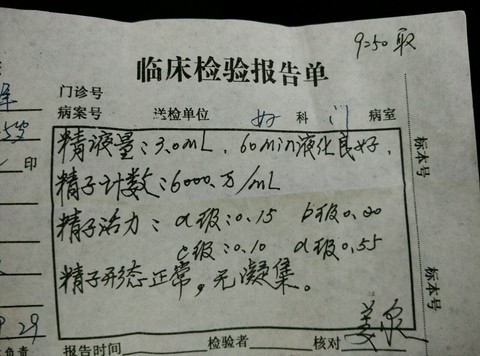 9:50取
临床检验报告单
门诊号
病案号 送检单位 妇 科 门 病室
精液量:3.0mL, 60min液化良好,
精子计数:6000万/mL
精子活力: a级:0.15 b级0.20
c级:0.10 d级0.55
精子形态正常,无凝集。
报告时间 检验者 核对
标本号
标本号
岁
印
29
负责